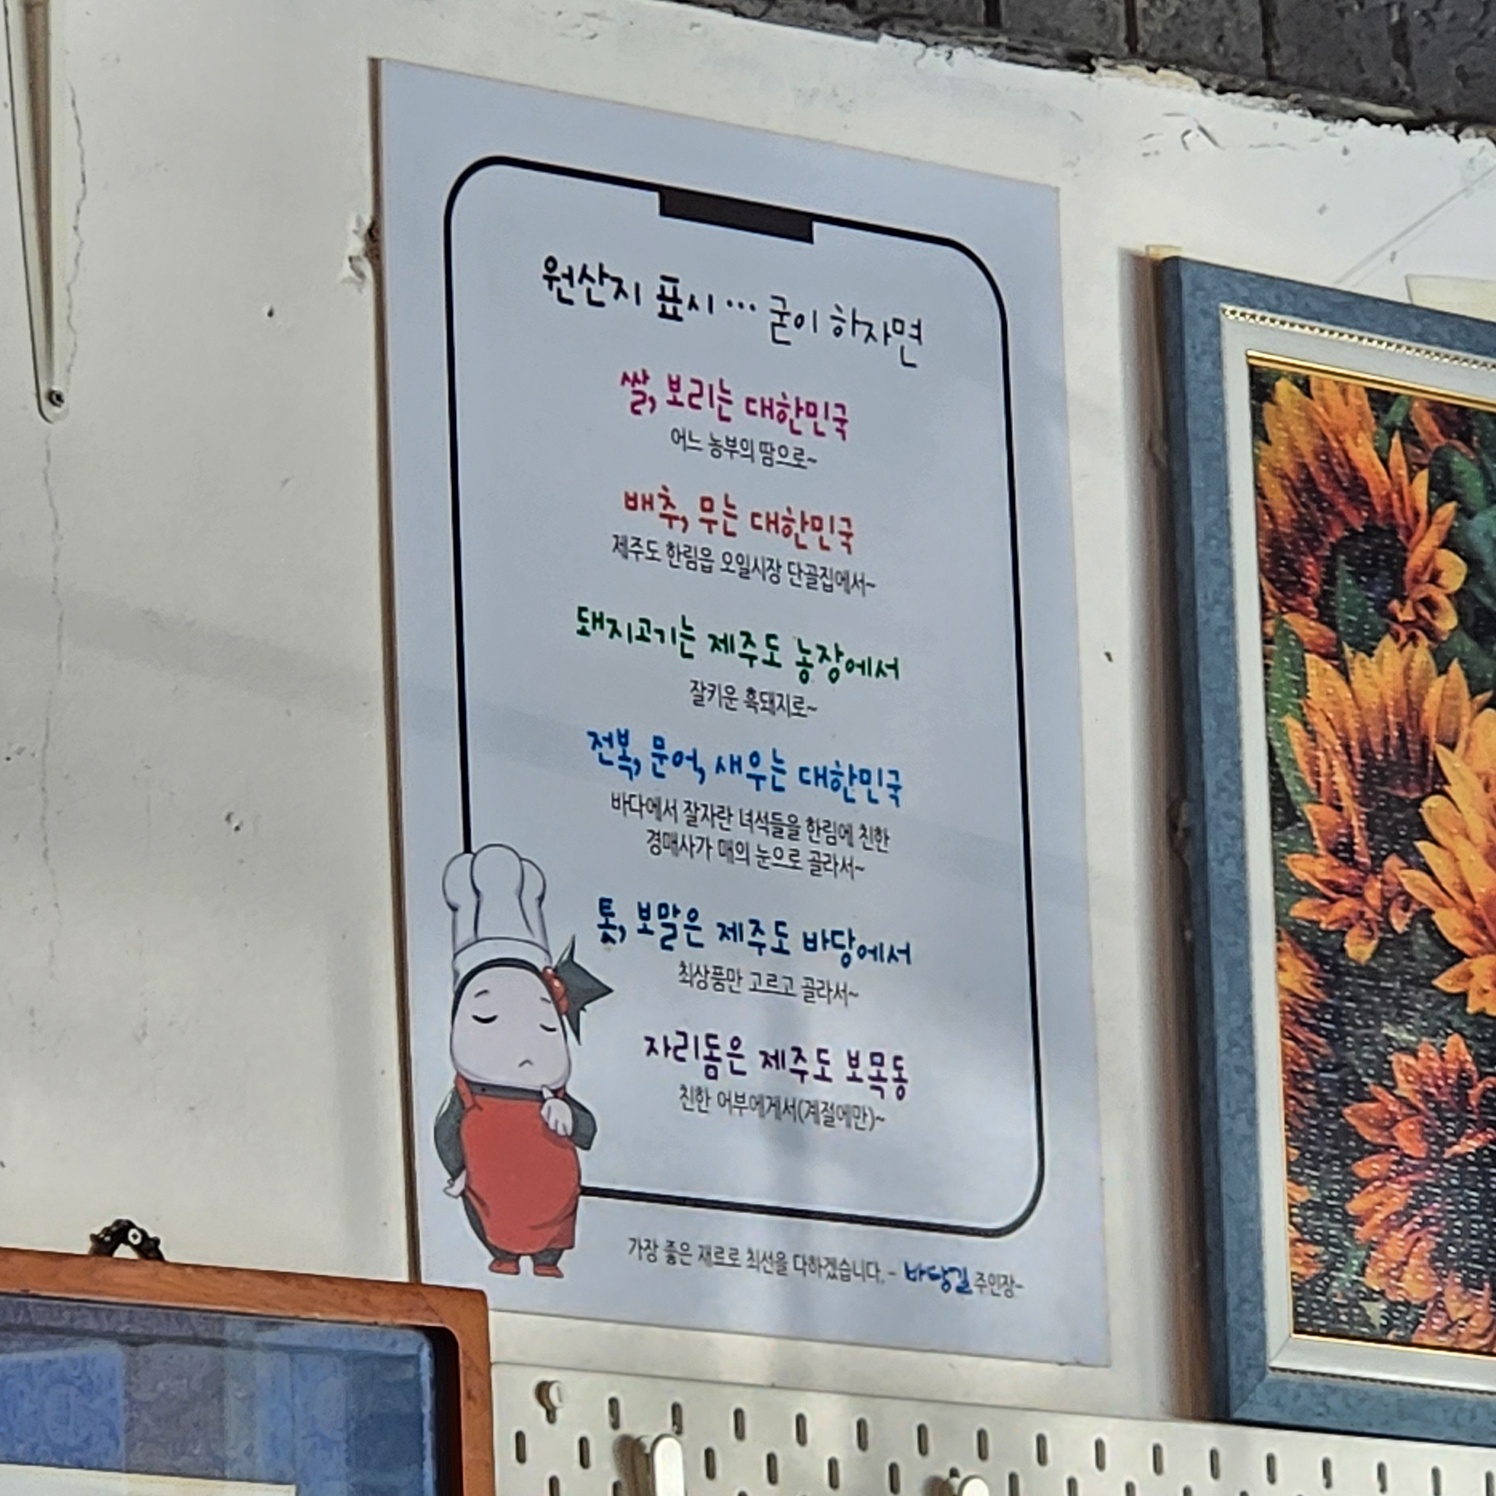 원산지 표시... 굳이 하자면
쌀, 보리는 대한민국
어느 농부의 땀으로~
배추, 무는 대한민국
제주도 한림읍 오일시장 단골집에서~
돼지고기는 제주도 농장에서
잘키운 흑돼지로~
전복, 문어, 새우는 대한민국
바다에서 잘자란 녀석들을 한림에 친한
경매사가 매의 눈으로 골라서~
톳, 보말은 제주도 바당에서
최상품만 고르고 골라서~
자리돔은 제주도 보목동
친한 어부에게서(계절에만)~
가장 좋은 재료로 최선을 다하겠습니다. - 바당길 주인장-